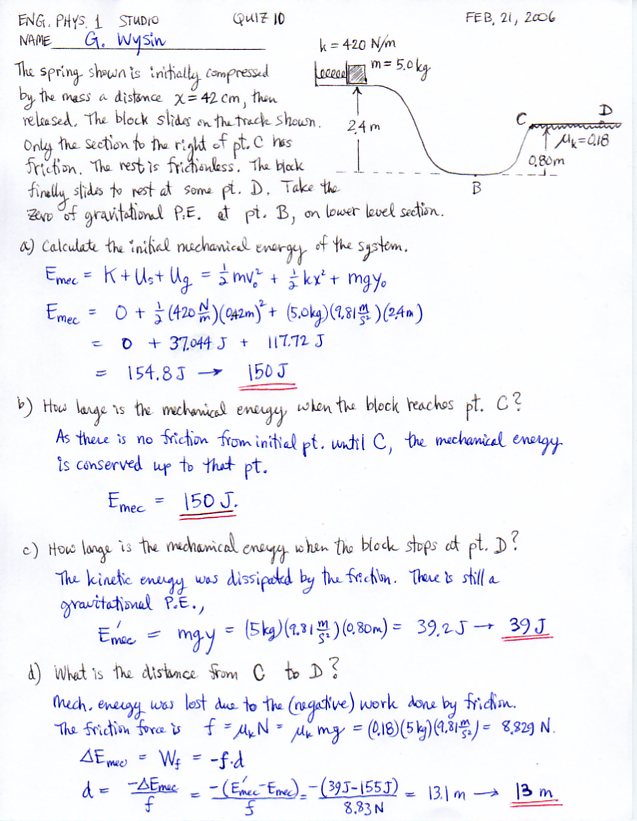 ENG. PHYS. 1 STUDIO QUIZ 10 FEB. 21, 2006
NAME G. Wysin
k = 420 N/m
m = 5.0 kg
The spring shown is initially compressed
by the mass a distance x = 42 cm, then
released. The block slides on the track shown.
Only the section to the right of pt. C has
friction. The rest is frictionless. The block
finally slides to rest at some pt. D. Take the
zero of gravitational P.E. at pt. B, on lower level section.
2.4 m
C
D
μk = 0.18
0.80m
B
a) Calculate the initial mechanical energy of the system.
Emec = K + Us + Ug = ½ mv₀² + ½ kx² + mgy₀
Emec = 0 + ½ (420 N/m)(0.42m)² + (5.0kg)(9.81 m/s²)(2.4m)
= 0 + 37.044 J + 117.72 J
= 154.8 J → 150 J
b) How large is the mechanical energy when the block reaches pt. C?
As there is no friction from initial pt. until C, the mechanical energy
is conserved up to that pt.
Emec = 150 J.
c) How large is the mechanical energy when the block stops at pt. D?
The kinetic energy was dissipated by the friction. There is still a
gravitational P.E.,
E'mec = mgy = (5kg)(9.81 m/s²)(0.80m) = 39.2 J → 39 J
d) What is the distance from C to D?
Mech. energy was lost due to the (negative) work done by friction.
The friction force is f = μkN = μk mg = (0.18)(5kg)(9.81 m/s²) = 8.829 N.
ΔEmec = Wf = -f·d
d = -ΔEmec/f = -(E'mec - Emec)/f = -(39J - 155J)/8.83N = 13.1 m → 13 m